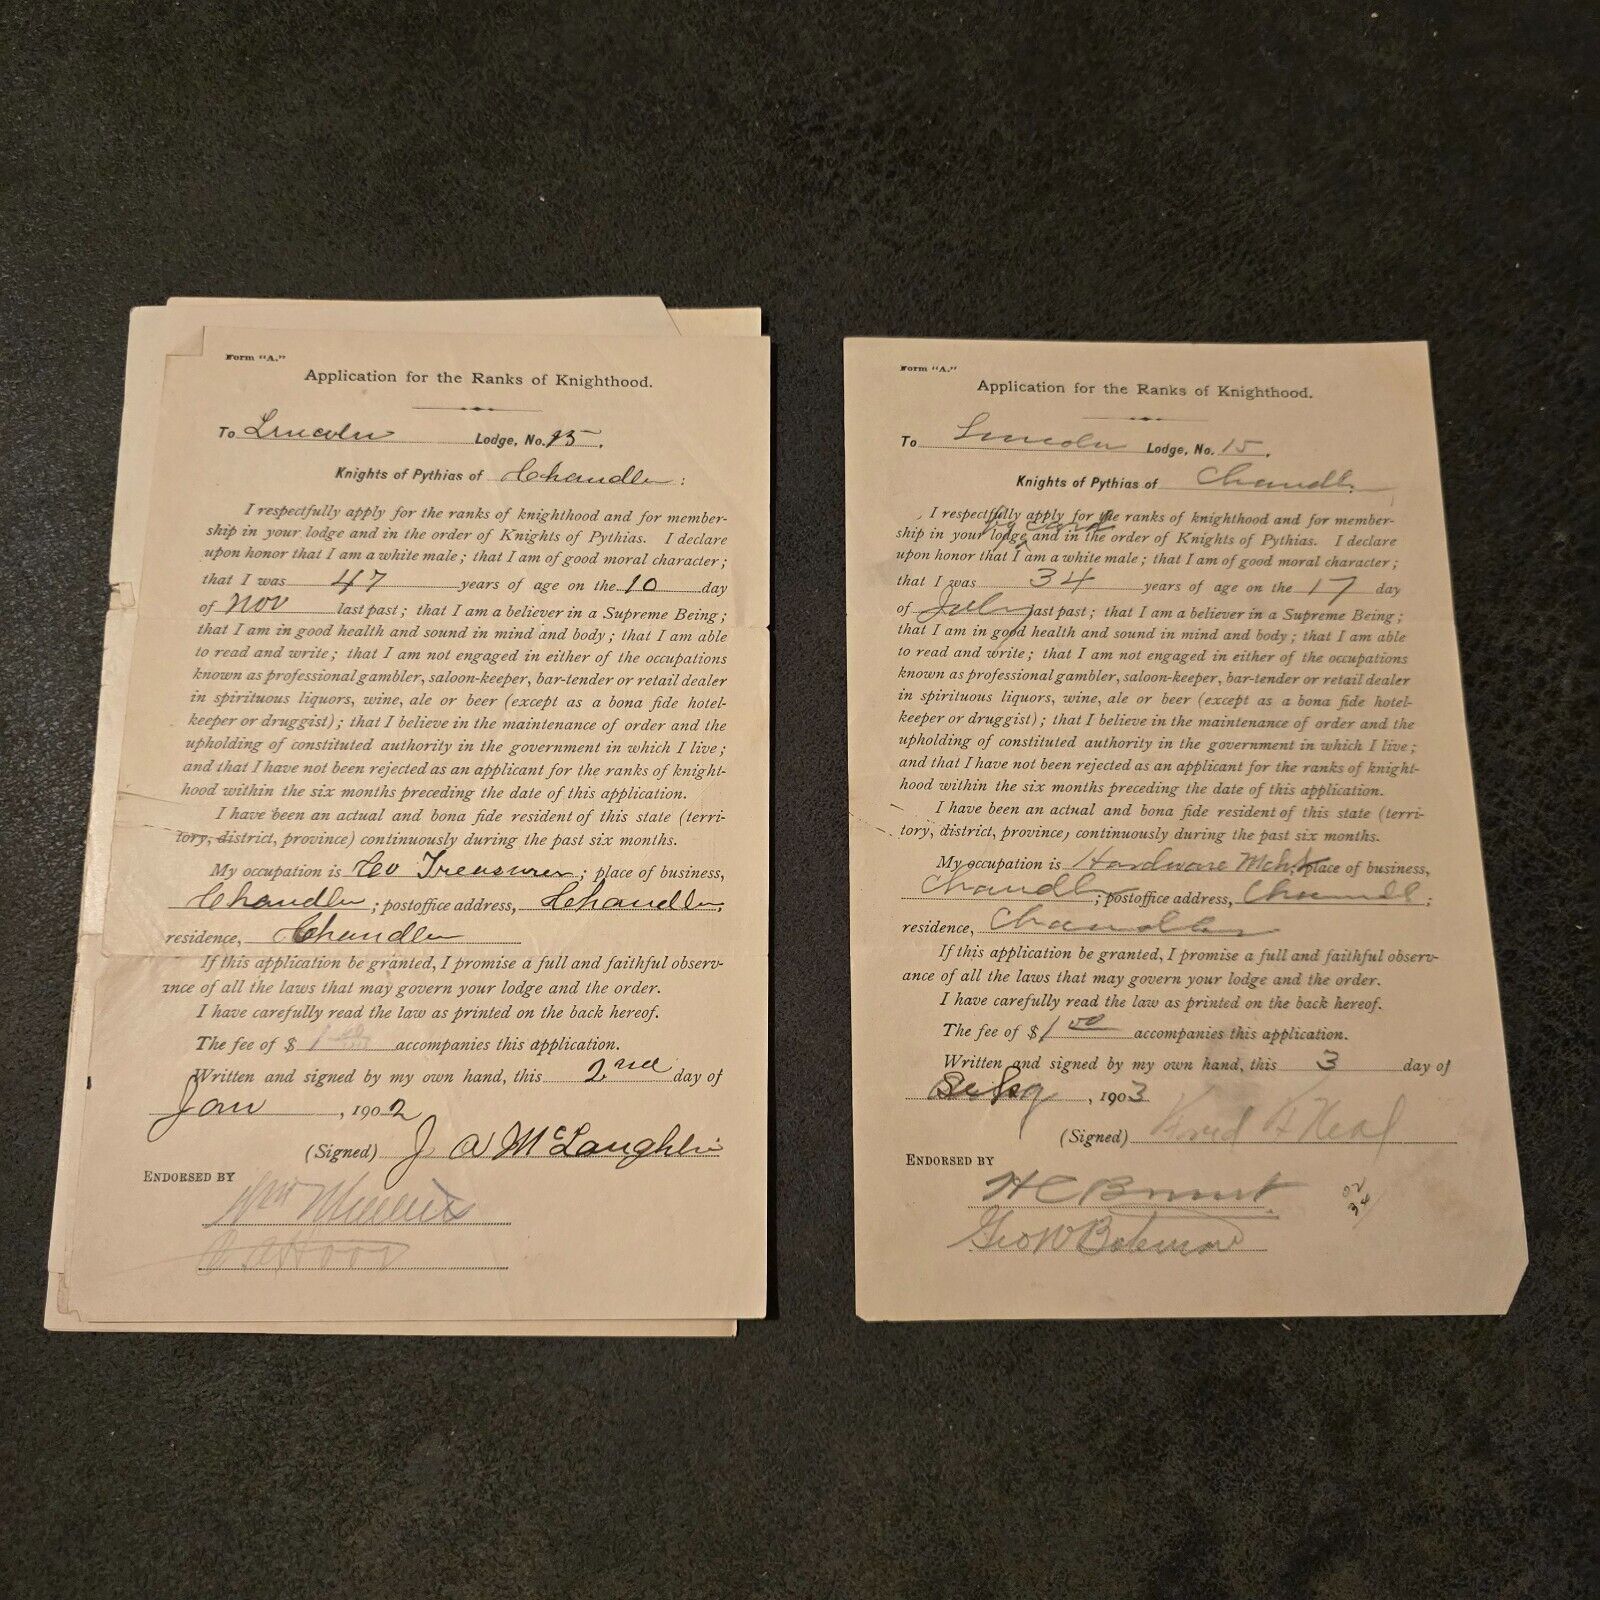 Form "A."
Application for the Ranks of Knighthood.
To Lincoln Lodge, No. 15.
Knights of Pythias of Chandler:
I respectfully apply for the ranks of knighthood and for member-
ship in your lodge and in the order of Knights of Pythias. I declare
upon honor that I am a white male; that I am of good moral character;
that I was 47 years of age on the 10 day
of Nov last past; that I am a believer in a Supreme Being;
that I am in good health and sound in mind and body; that I am able
to read and write; that I am not engaged in either of the occupations
known as professional gambler, saloon-keeper, bar-tender or retail dealer
in spirituous liquors, wine, ale or beer (except as a bona fide hotel-
keeper or druggist); that I believe in the maintenance of order and the
upholding of constituted authority in the government in which I live;
and that I have not been rejected as an applicant for the ranks of knight-
hood within the six months preceding the date of this application.
I have been an actual and bona fide resident of this state (terri-
tory, district, province) continuously during the past six months.
My occupation is Co Treasurer; place of business,
Chandler; postoffice address, Chandler;
residence, Chandler
If this application be granted, I promise a full and faithful observ-
ance of all the laws that may govern your lodge and the order.
I have carefully read the law as printed on the back hereof.
The fee of $ 1 00 accompanies this application.
Written and signed by my own hand, this 2nd day of
Jan, 1902
(Signed) J A McLaughlin
ENDORSED BY
Wm
Form "A."
Application for the Ranks of Knighthood.
To Lincoln Lodge, No. 15.
Knights of Pythias of Chandler
I respectfully apply for the ranks of knighthood and for member-
ship in your lodge and in the order of Knights of Pythias. I declare
upon honor that I am a white male; that I am of good moral character;
that I was 34 years of age on the 17 day
of July last past; that I am a believer in a Supreme Being;
that I am in good health and sound in mind and body; that I am able
to read and write; that I am not engaged in either of the occupations
known as professional gambler, saloon-keeper, bar-tender or retail dealer
in spirituous liquors, wine, ale or beer (except as a bona fide hotel-
keeper or druggist); that I believe in the maintenance of order and the
upholding of constituted authority in the government in which I live;
and that I have not been rejected as an applicant for the ranks of knight-
hood within the six months preceding the date of this application.
I have been an actual and bona fide resident of this state (terri-
tory, district, province) continuously during the past six months.
My occupation is Hardware Mcht; place of business,
Chandler; postoffice address, Chandler;
residence, Chandler
If this application be granted, I promise a full and faithful observ-
ance of all the laws that may govern your lodge and the order.
I have carefully read the law as printed on the back hereof.
The fee of $ 1 00 accompanies this application.
Written and signed by my own hand, this 3 day of
, 1903
(Signed) Neal
ENDORSED BY
H C
Geo W
02
34